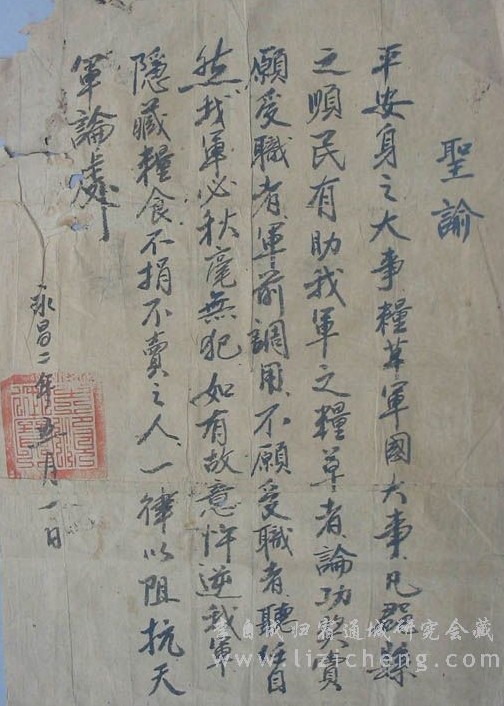 聖諭
平安身之大事糧草軍國大事凡郡縣
之順民有助我軍之糧草者論功獎賞
願受職者軍前調用不願受職者聽任自
然我軍必秋毫無犯如有故意忤逆我軍
隱藏糧食不捐不賣之人一律以阻抗天
軍論處
永昌二年五月一日
李自成归宿通城研究会藏
www.lizicheng.com